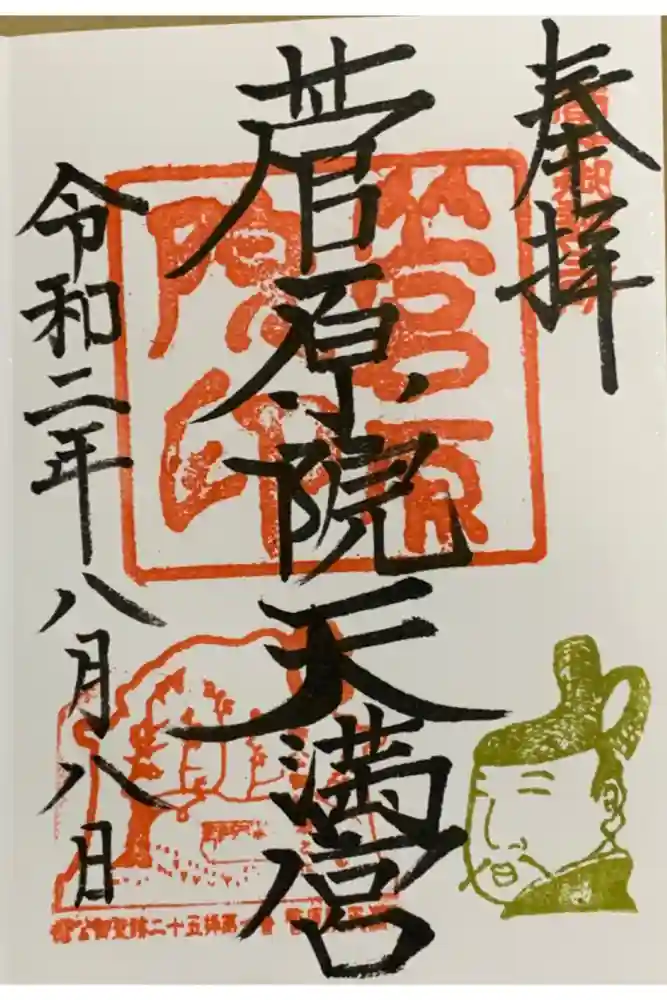 奉拝
菅原院天満宮
令和二年八月八日
菅原院印